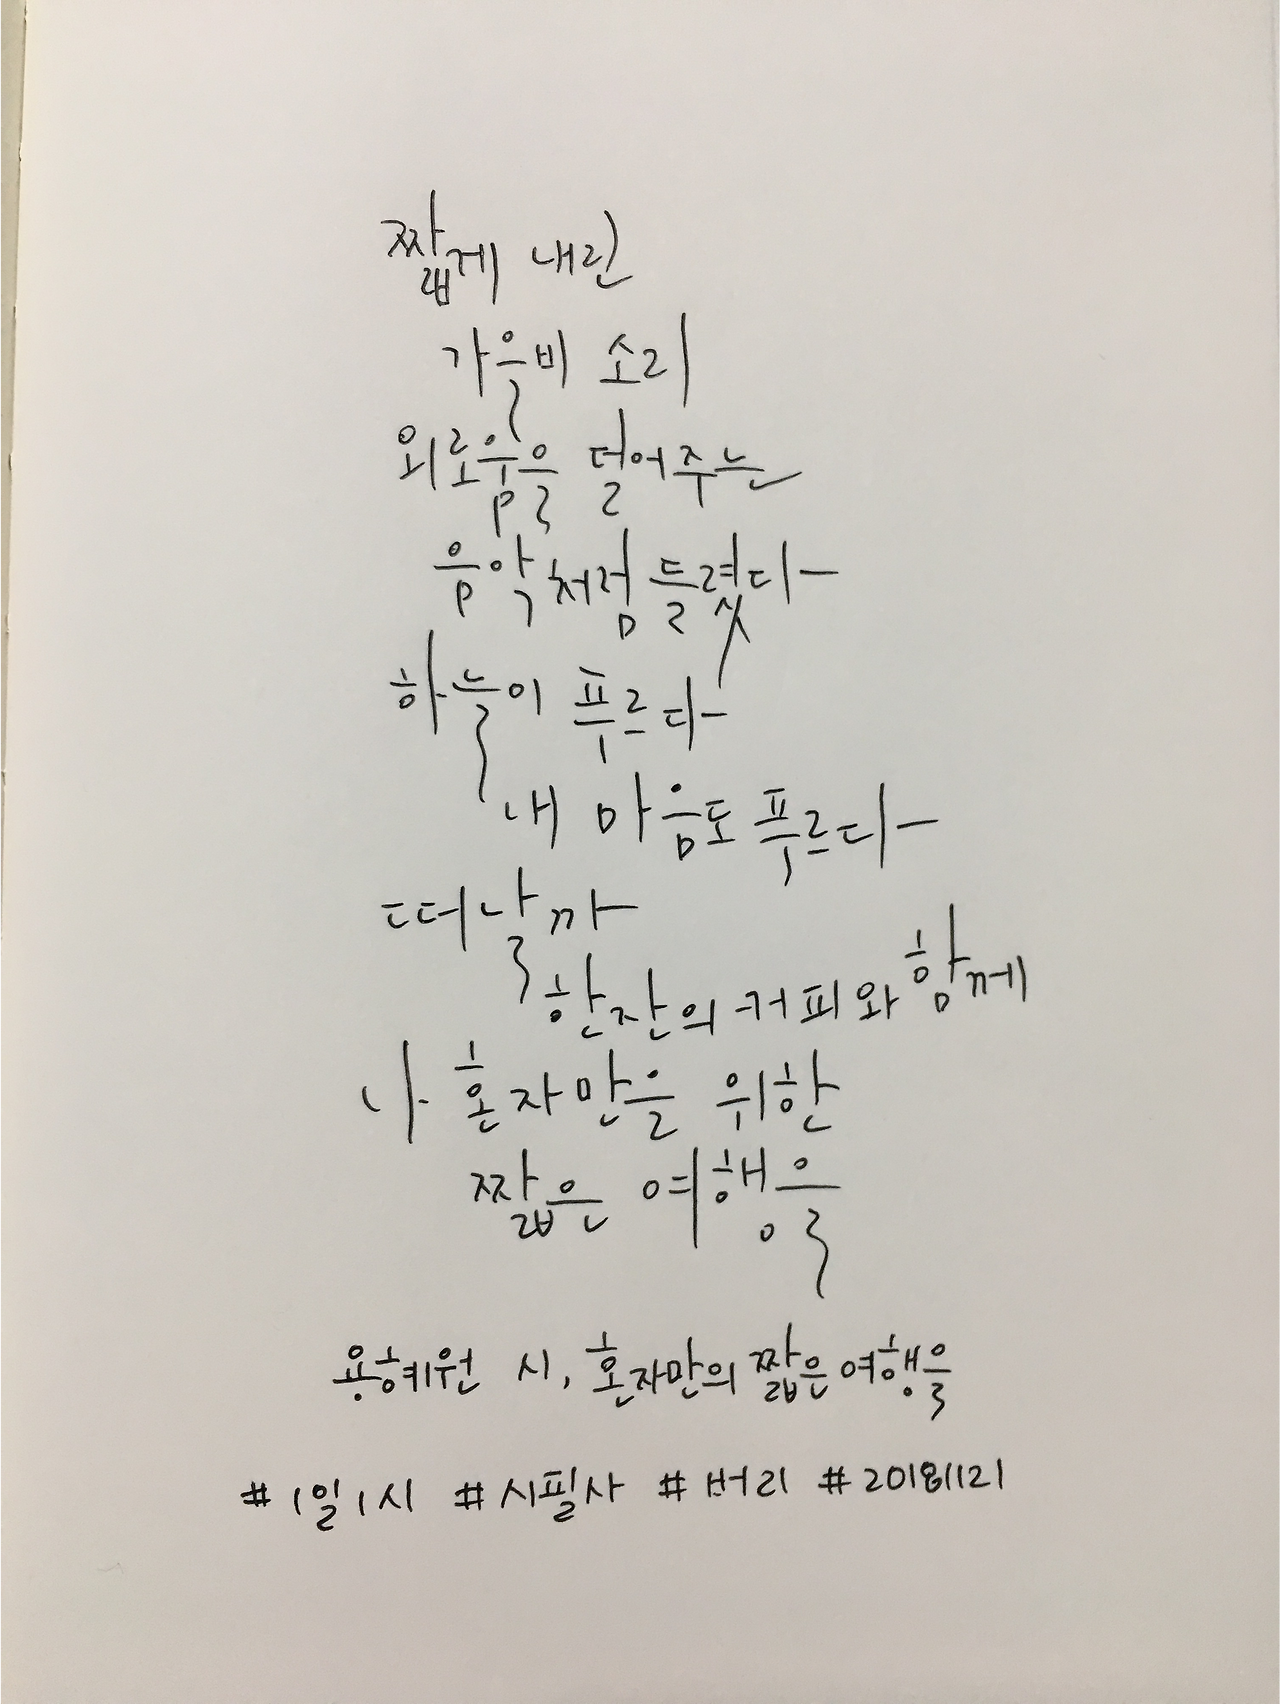 짧게 내린
가을비 소리
외로움을 덜어주는
음악처럼 들렸다
하늘이 푸르다
내 마음도 푸르다
떠날까
한잔의 커피와 함께
나 혼자만을 위한
짧은 여행을
용혜원 시, 혼자만의 짧은 여행을
#1일1시 #시필사 #버리 #20181121